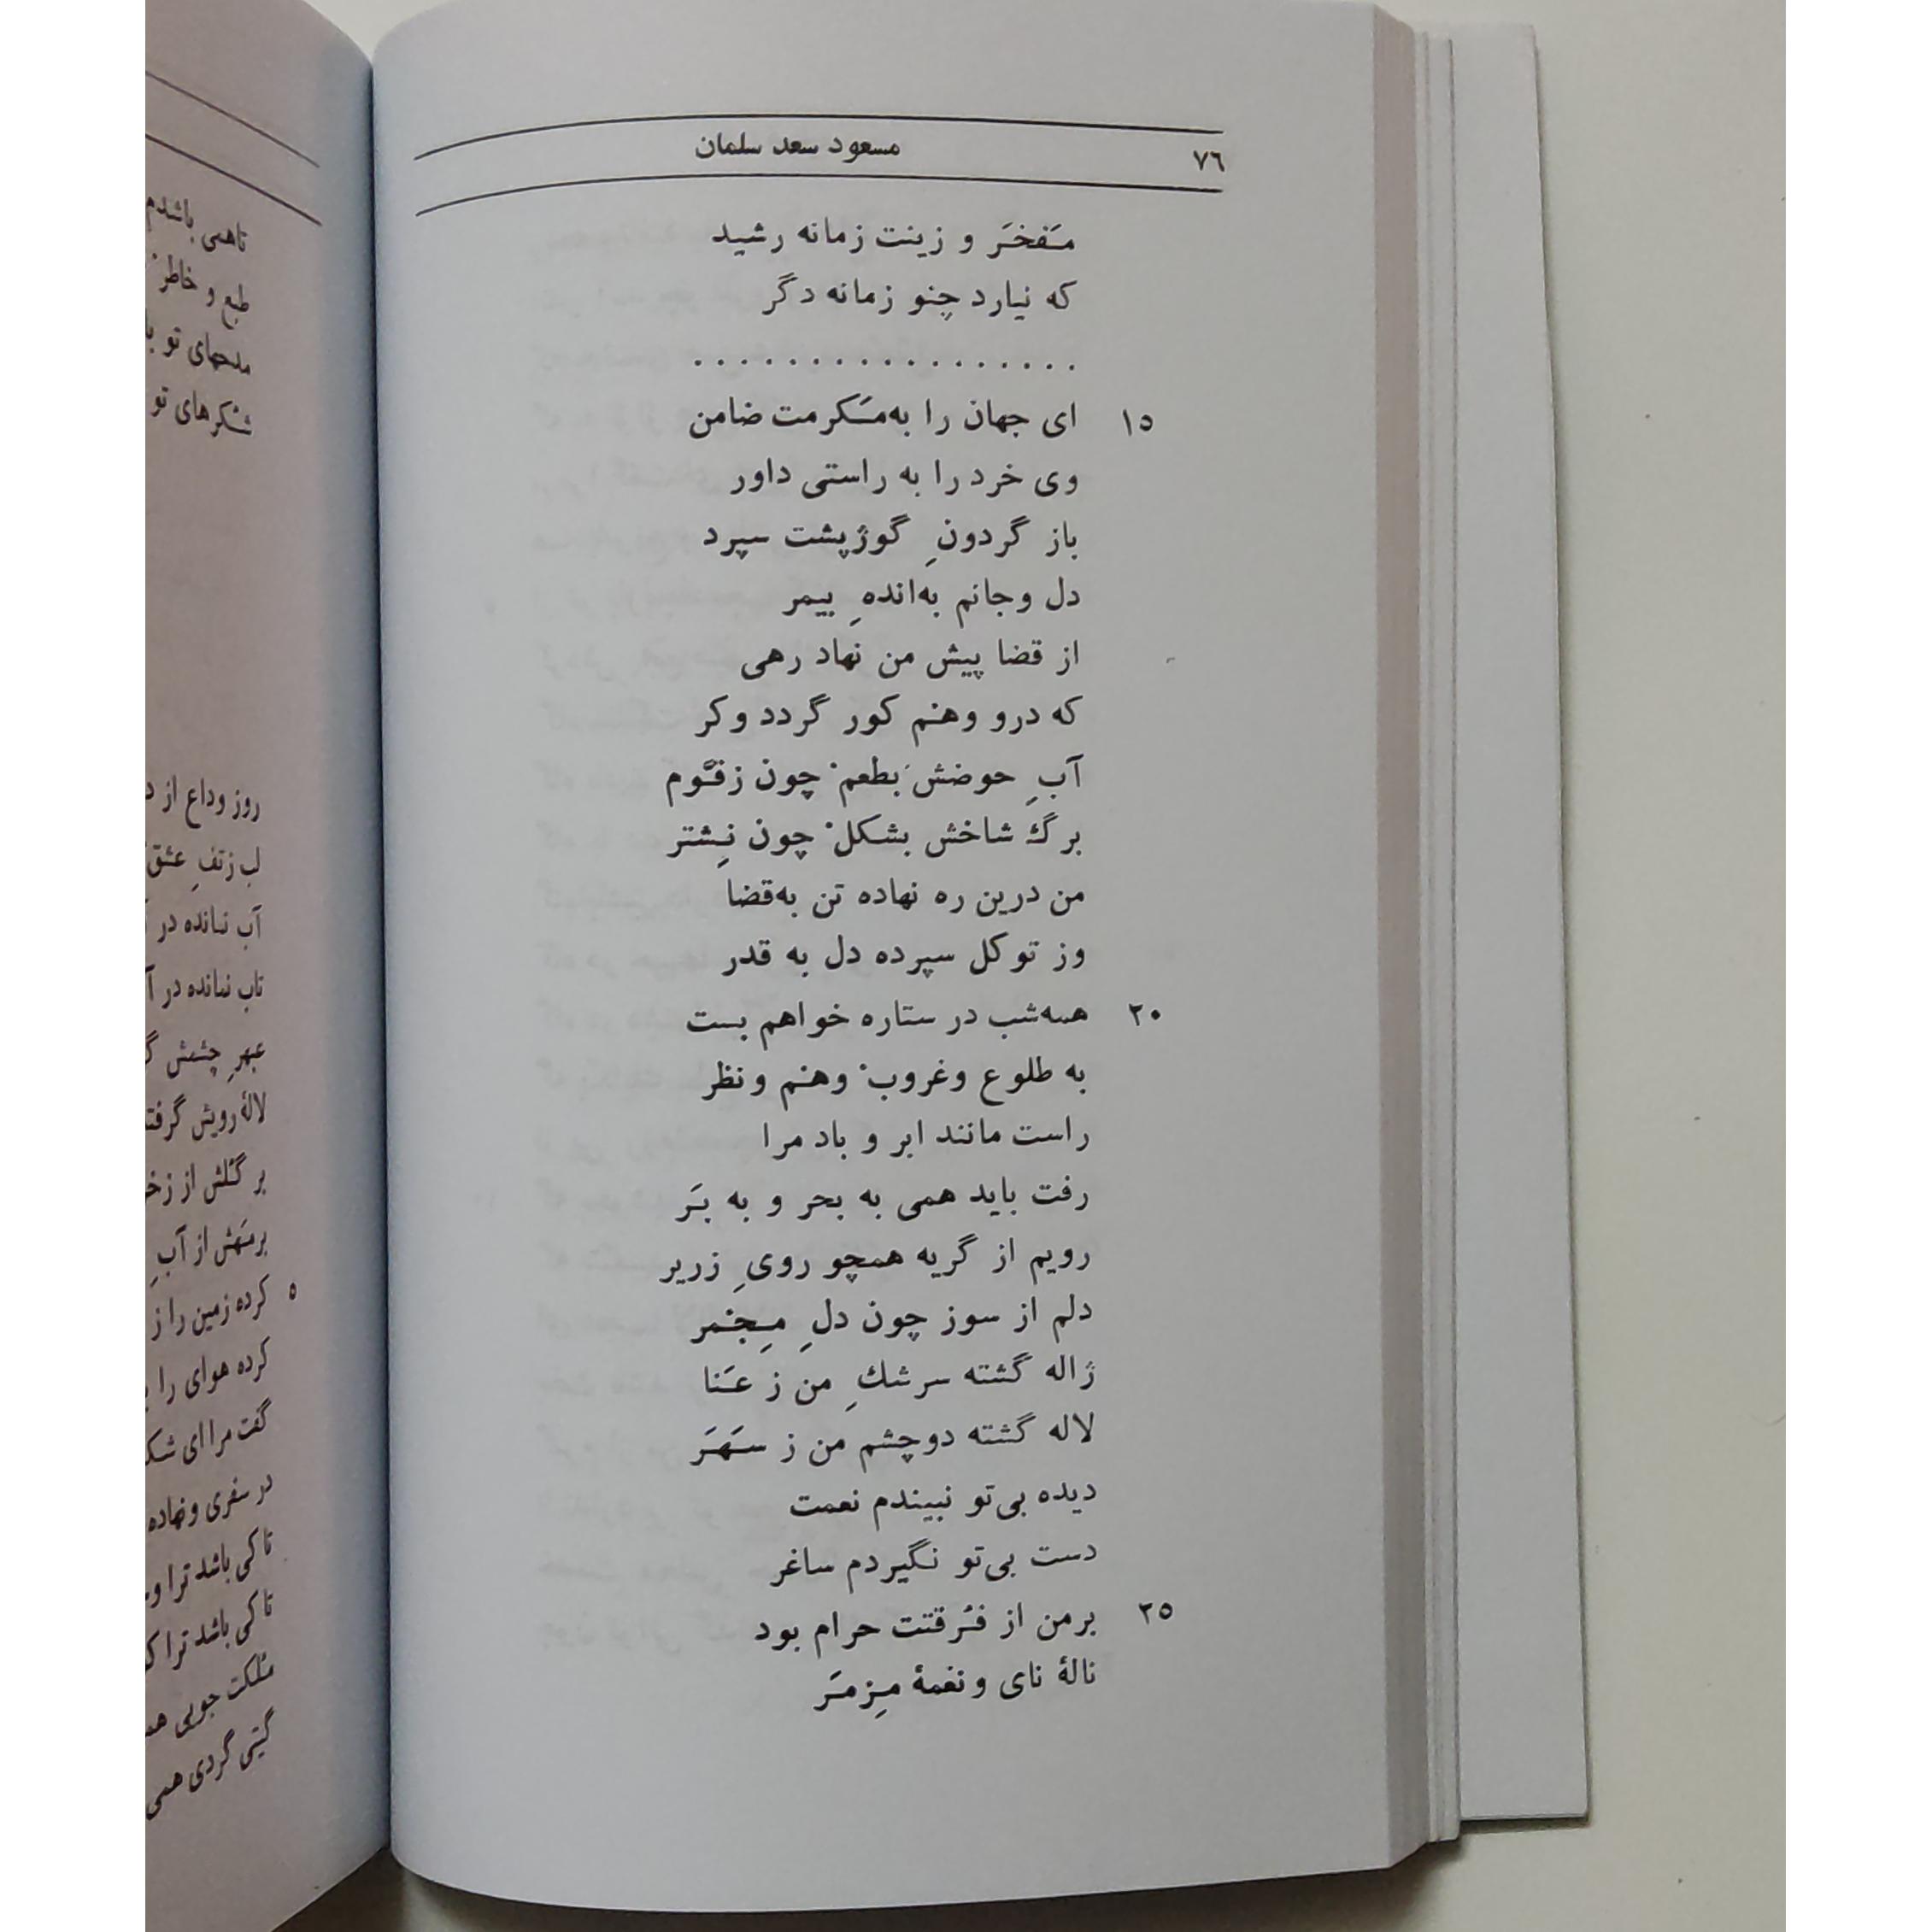 ٧٦
مسعود سعد سلمان
مَفخَر و زینت زمانه رشید
که نیارد چِنو زمانه دگر
. . . . . . . . . . . . . . . . .
١٥ ای جهان را به‌مَکرمت ضامن
وی خرد را به راستی داور
باز گردونِ گوژپشت سپرد
دل وجانم به‌اندهِ بیمر
از قضا پیش من نهاد رهی
که درو وهْم کور گردد وکر
آبِ حوضش بطعمْ چون زقّوم
برگ شاخش بشکلْ چون نِشتر
من درین ره نهاده تن به‌قضا
وز توکل سپرده دل به قدر
٢٠ همه‌شب در ستاره خواهم بست
به طلوع وغروبْ وهْم ونظر
راست مانند ابر و باد مرا
رفت باید همی به بحر و به بَر
رویم از گریه همچو رویِ زریر
دلم از سوز چون دلِ مِجْمر
ژاله گشته سرشکِ من ز عَنا
لاله گشته دوچشم من ز سَهَر
دیده بی‌تو نبیندم نعمت
دست بی‌تو نگیردم ساغر
٢٥ برمن از فُرقتت حرام بود
نالهٔ نای ونغمهٔ مِزمَر
تاهمی باشدم
طبع و خاطر
مدحهای تو
شکرهای تو
روز وداع از
لب زتفِ عشق
آب نمانده در
تاب نمانده در
عبهرِ چشمش
لالهٔ رویش
بر گُلش از
برمَهش از آبِ
٥ کرده زمین را ز
کرده هوای را
گفت مرا ای
در سفری ونهاده
تاکی باشد ترا
تاکی باشد ترا
مُلکت جویی
گیتی گردی همی